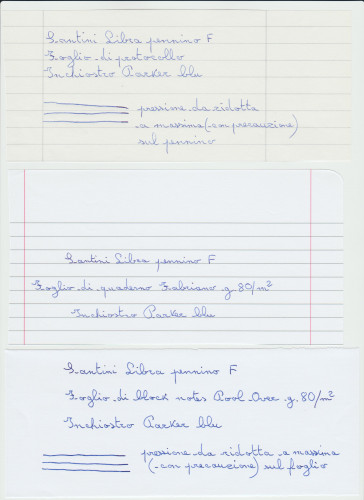 Santini Libra pennino F
Foglio di protocollo
Inchiostro Parker blu
pressione da ridotta
a massima (con precauzione)
sul pennino
Santini Libra pennino F
Foglio di quaderno Fabriano g 80/m²
Inchiostro Parker blu
Santini Libra pennino F
Foglio di block notes Pool Over g. 80/m²
Inchiostro Parker blu
pressione da ridotta a massima
(con precauzione) sul foglio